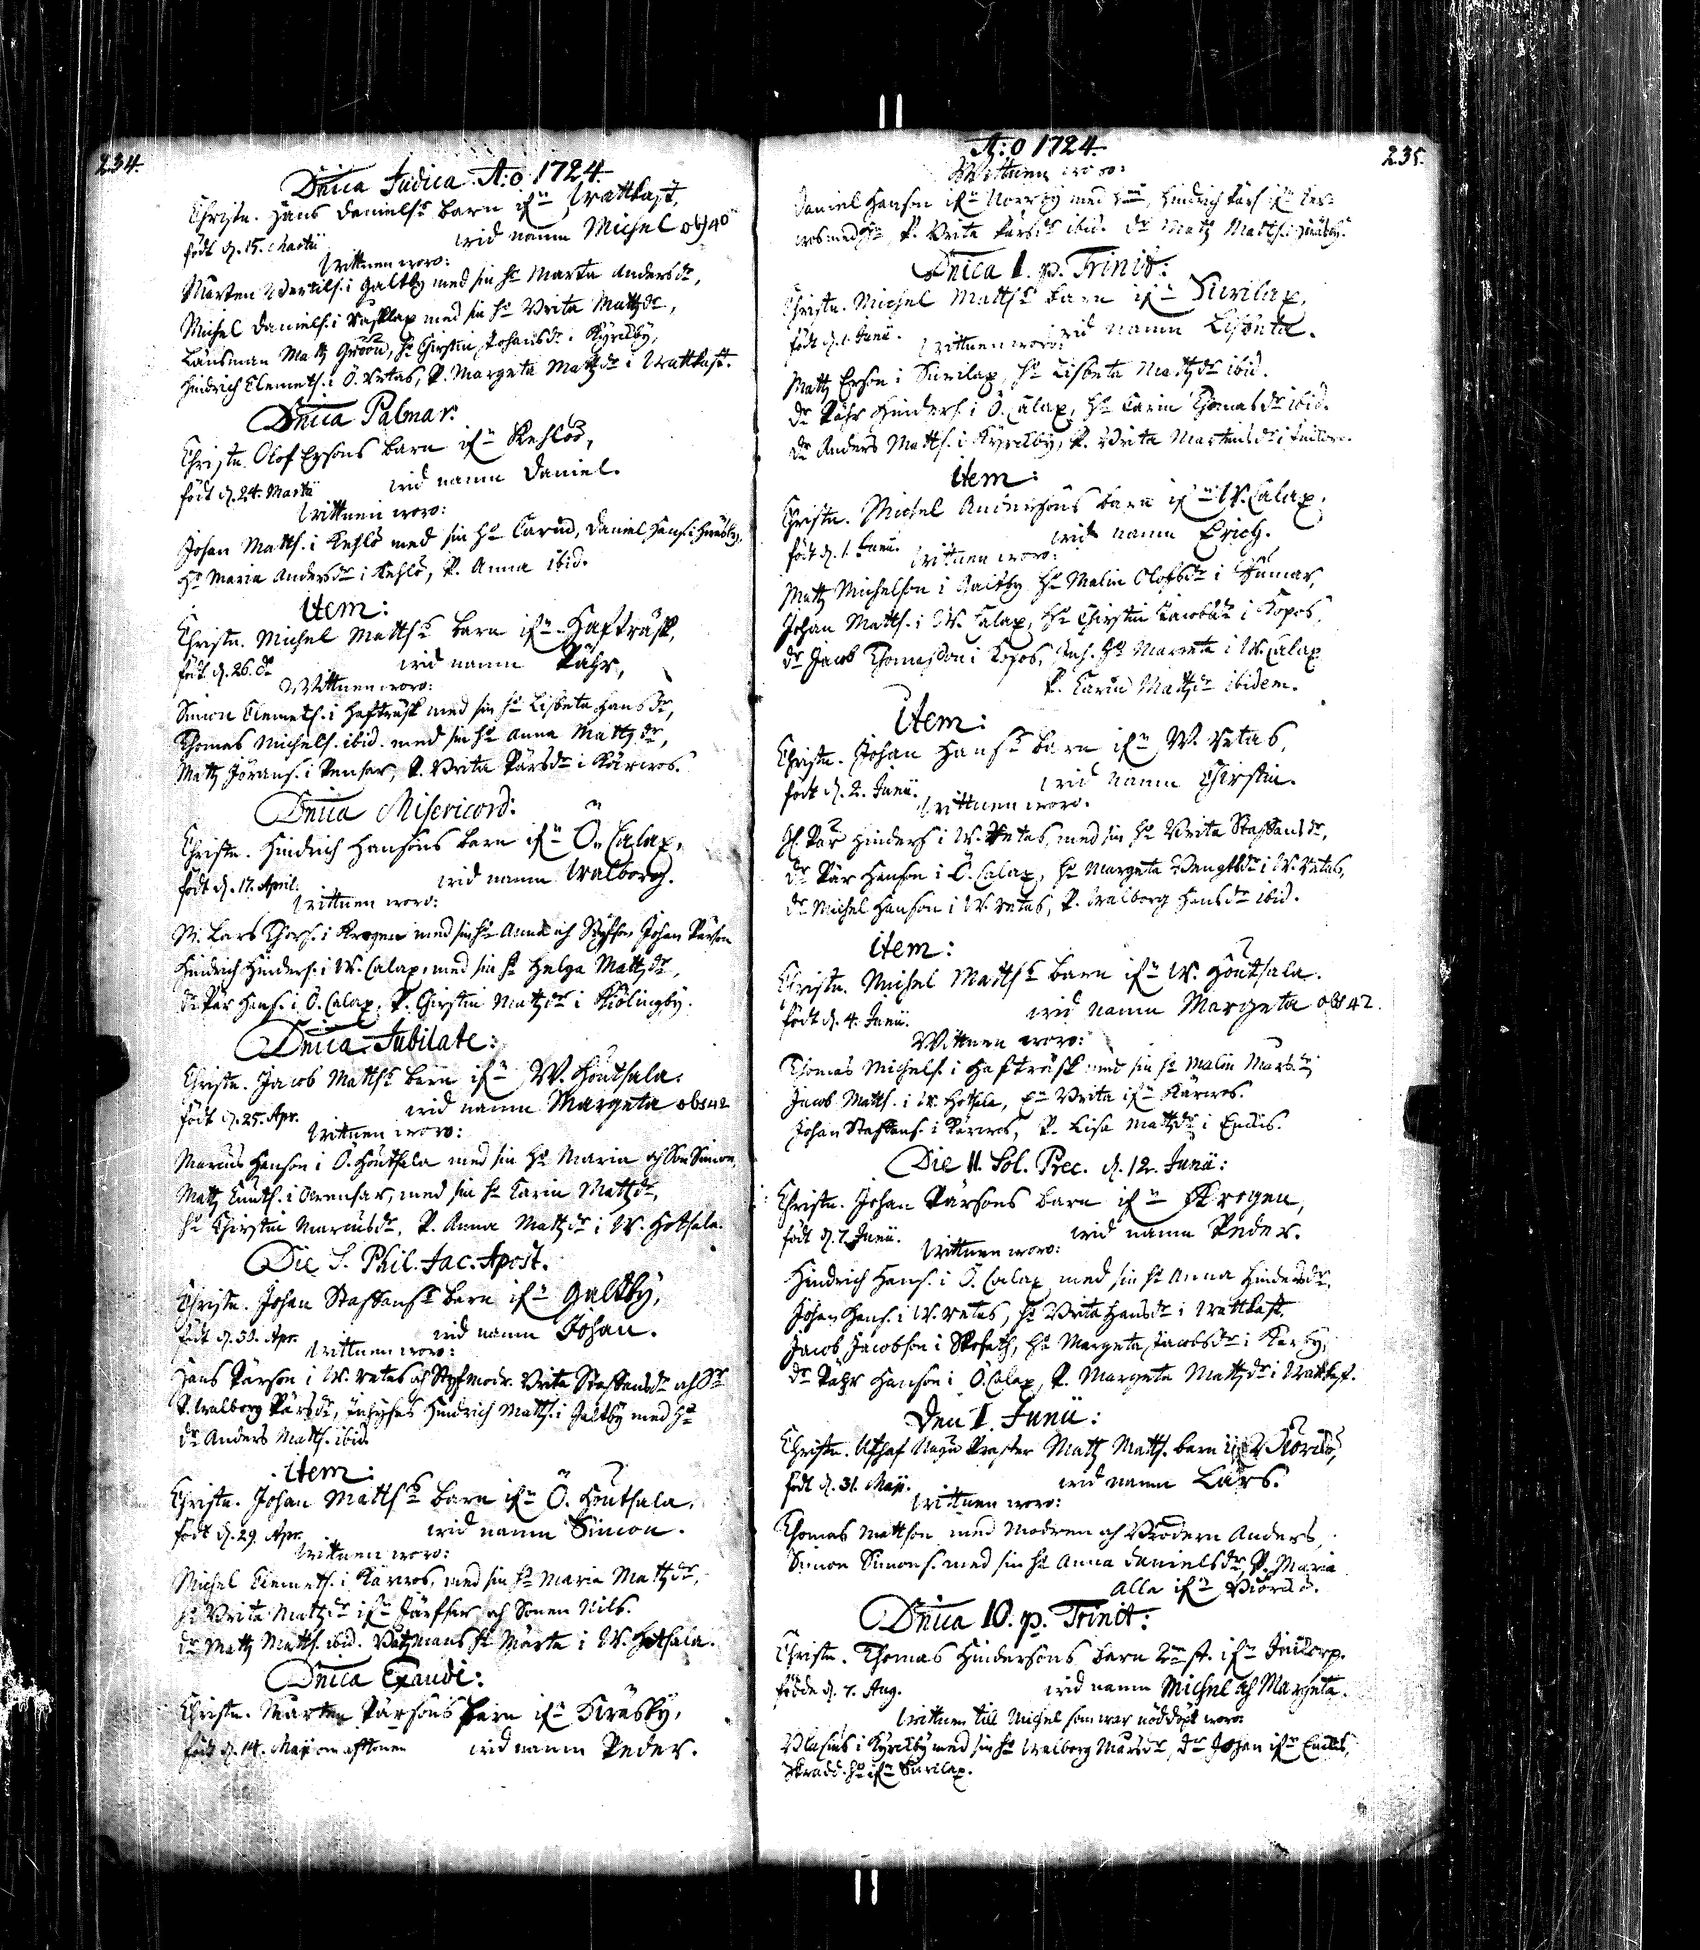 234.
Dnica Judica A:o 1724.
Christn. Hans Danielss barn ifrn Wattkast,
född d. 15. Martii wid namn Michel obs 40
Wittnen woro:
Mårten Bertils. i Galtby med sin Ho Marta Andersdr,
Michel Daniels. i Rusklax med sin Ho Brita Mattzdr,
Länsman Matz Gröön, Ho Chirstin Johansdr i Kyrkby,
Hindrich Clemets. i Ö. Retas, P. Margeta Mattzdr i Wattkast.
Dnica Palmar:
Christn. Olof Ersons barn ifrn Kehlöö,
född d. 24. Martii wid namn Daniel.
Wittnen woro:
Johan Matts. i Kehlö med sin Ho Carin, Daniel Hans. i
Ho Maria Andersdr i Kehlö, P. Anna ibid.
item:
Christn. Michel Mattss barn ifrn Hafträsk,
född d. 26. do wid namn Påhr,
Wittnen woro:
Simon Clemets. i Hafträsk med sin Ho Lisbeta Hansdr,
Thomas Michels. ibid. med sin Ho Anna Mattzdr,
Matz Jörans. i Pensar, P. Brita Pärsdr i Kärwos.
Dnica Misericord:
Christn. Hindrich Hansons barn ifrn Ö. Calax,
född d. 17. April. wid namn Walborg.
Wittnen woro:
Lars i Krogen med sin Ho Anna och Johan Pärson
Hindrich Hinders. i W. Calax, med sin Ho Helga Mattzdr,
dr Pär Hans. i Ö. Calax, P. Chirstin Mattzdr i Kiölingby.
Dnica Jubilate:
Christn. Jacob Mattss barn ifrn W. Houtsala.
född d. 25. Apr. wid namn Margeta obs 42
Wittnen woro:
Marcus Hanson i Ö. Houtsala med sin Ho Maria och Son Simon,
Matz Knuts. i med sin Ho Carin Mattzdr,
Ho Chirstin Marcusdr, P. Anna Mattzdr i W. Hotsala.
Die S. Phil. Jac. Apost.
Christn. Johan Staffanss barn ifrn Galtby,
född d. 30. Apr. wid namn Johan.
Wittnen woro:
Hans Pärson i W. Retas och Styfmodr. Brita Staffansdr och
P. Walborg Pärsdr, Hindrich Matts. i Galtby med Ho
dr Anders Matts. ibid.
item:
Christn. Johan Mattss barn ifrn Ö. Houtsala.
född d. 29. Apr. wid namn Simon.
Wittnen woro:
Michel Clemets. i Kärwos, med sin Ho Maria Mattzdr,
Ho Brita Mattzdr ifrn Järfsar och Sonen Nils.
dr Matz Matts. ibid. Båtzmans Ho Märta i W. Hotsala.
Dnica Exaudi:
Christn. Mårten Pärsons barn ifrn Kiräsby,
född d. 14. Maji om aftonen wid namn Peder.
235.
A:o 1724.
Wittnen woro:
Daniel Hanson ifrn Norrby med Hindrich Lars. ifrn
P. Brita Larsdr ibid. dr Matz Matts.
Dnica 1. p. Trinit:
Christn. Michel Mattss barn ifrn Svirilax,
född d. 1. Junii. wid namn Lisbeta.
Wittnen woro:
Matz Erson i Svirilax, Ho Lisbeta Mattzdr ibid.
dr Påhr Hinders. i Ö. Calax, Ho Carin Thomasdr ibid.
dr Anders Matts. i Kyrkby, P. Brita Mårtensdr i
item:
Christn. Michel Andersons barn ifrn W. Calax,
född d. 1. Junii. wid namn Erich.
Wittnen woro:
Matz Michelson i Galtby Ho Malin Olofsdr i
Johan Matts. i W. Calax, Ho Chirstin Jacobsdr i Kopos,
dr Jacob Thomasson i Kopos, Ho Margeta i W. Calax
P. Carin Mattzdr ibidem.
item:
Christn. Johan Hanss barn ifrn W. Retas,
född d. 2. Junii. wid namn Chirstin.
Wittnen woro.
Pär Hinders i W. Retas, med sin Ho Brita Staffansdr,
dr Pär Hanson i Ö. Calax, Ho Margeta Bengtsdr i W. Retas,
dr Michel Hanson i W. Retas, P. Walborg Hansdr ibid.
item:
Christn. Michel Mattss barn ifrn W. Houtsala.
född d. 4. Junii. wid namn Margeta obs 42.
Wittnen woro:
Thomas Michels. i Hafträsk med sin Ho Malin
Jacob Matts. i W. Hotsala, Brita ifrn Kärwos.
Johan Staffans. i Kärwos, P. Lisa Mattzdr i Endis.
Die II. Sol. Prec. d. 12. Junii:
Christn. Johan Pärsons barn ifrn Krogen,
född d. 7. Junii. wid namn Peder.
Wittnen woro:
Hindrich Hans. i Ö. Calax med sin Ho Anna Hindersdr,
Johan Hans. i W. Retas, Ho Brita Hansdr i Wattkast,
Jacob Jacobson i Ho Margeta Jacobsdr i
dr Påhr Hanson i Ö. Calax, P. Margeta Mattzdr i Wattkast.
Den 1. Junii:
Christn. Matz Matts. barn Biörkö,
född d. 31. Maji. wid namn Lars.
Wittnen woro:
Thomas Mattson med Modren och Brodern Anders,
Simon Simons. med sin Ho Anna Danielsdr, P. Maria
alla ifrn Biörkö.
Dnica 10. p. Trinit:
Christn. Thomas Hindersons barn 2 st. ifrn
födde d. 7. Aug. wid namn Michel och Margeta.
Wittnen till Michel som war nöddöpt woro:
Blasius i Kyrkby med sin Ho Walborg dr Johan ifrn Endis,
Skradd. Ho ifrn Svirilax.